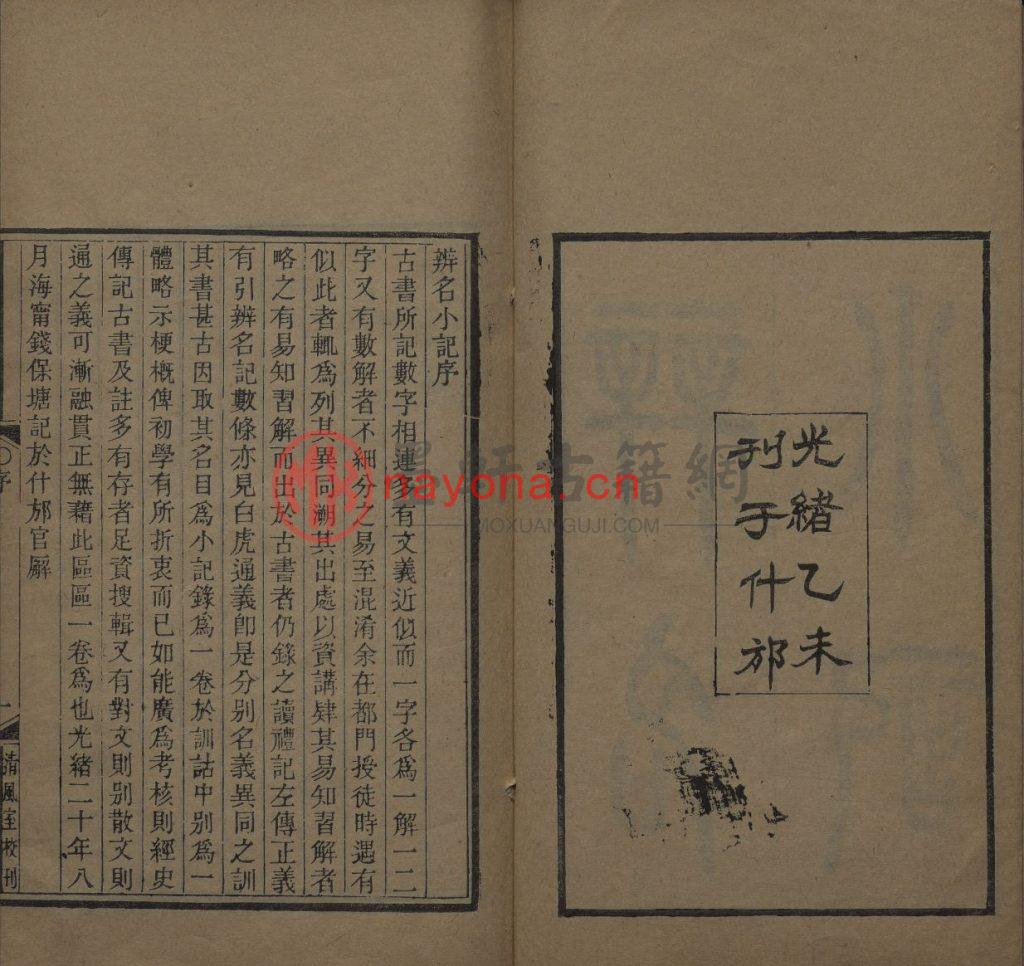 光緒乙未
刊于什邡
辨名小記序
古書所記數字相連多有文義近似而一字各爲一解一二
字又有數解者不細分之易至混淆余在都門授徒時遇有
似此者輒爲列其異同溯其出處以資講肄其易知習解者
略之有易知習解而出於古書者仍錄之讀禮記左傳正義
有引辨名記數條亦見白虎通義卽是分别名義異同之訓
其書甚古因取其名目爲小記錄爲一卷於訓詁中别爲一
體略示梗概俾初學有所折衷而已如能廣爲考核則經史
傳記古書及註多有存者足資搜輯又有對文則别散文則
通之義可漸融貫正無藉此區區一卷爲也光緒二十年八
月海甯錢保塘記於什邡官廨
序
一
清風室校刊
墨妍古籍網
MOXUANGUJI.COM
nayona.cn